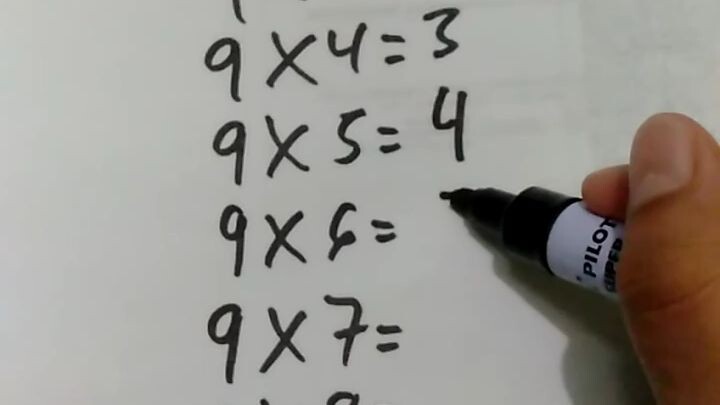 9 × 4 = 3
9 × 5 = 4
9 × 6 =
9 × 7 =
PILOT
SUPER